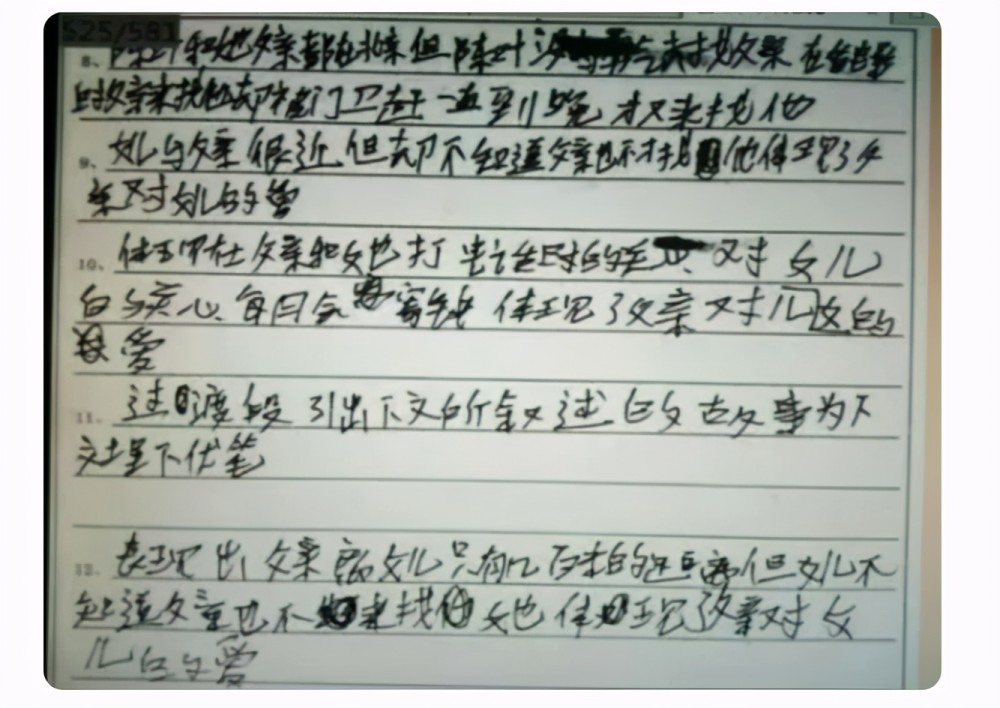 525/581
8、陈叶和她父亲都在北京但陈叶没去找父亲 在
时父亲来找他却被门卫赶 一直到晚 才又来找他
9、女儿与父亲很近 但却不知道父亲也不才找他体现了父
亲对女儿的爱
10、体现在父亲和女也打电话时的关 对女儿
的关心 每月会寄钱 体现了父亲对儿女的
爱
11、过渡段 引出下文所叙述的故事为下
文埋下伏笔
12、表现出父亲离女儿只有几百米的距离但女儿不
知道父亲也不来找她 体现父亲对女
儿的爱